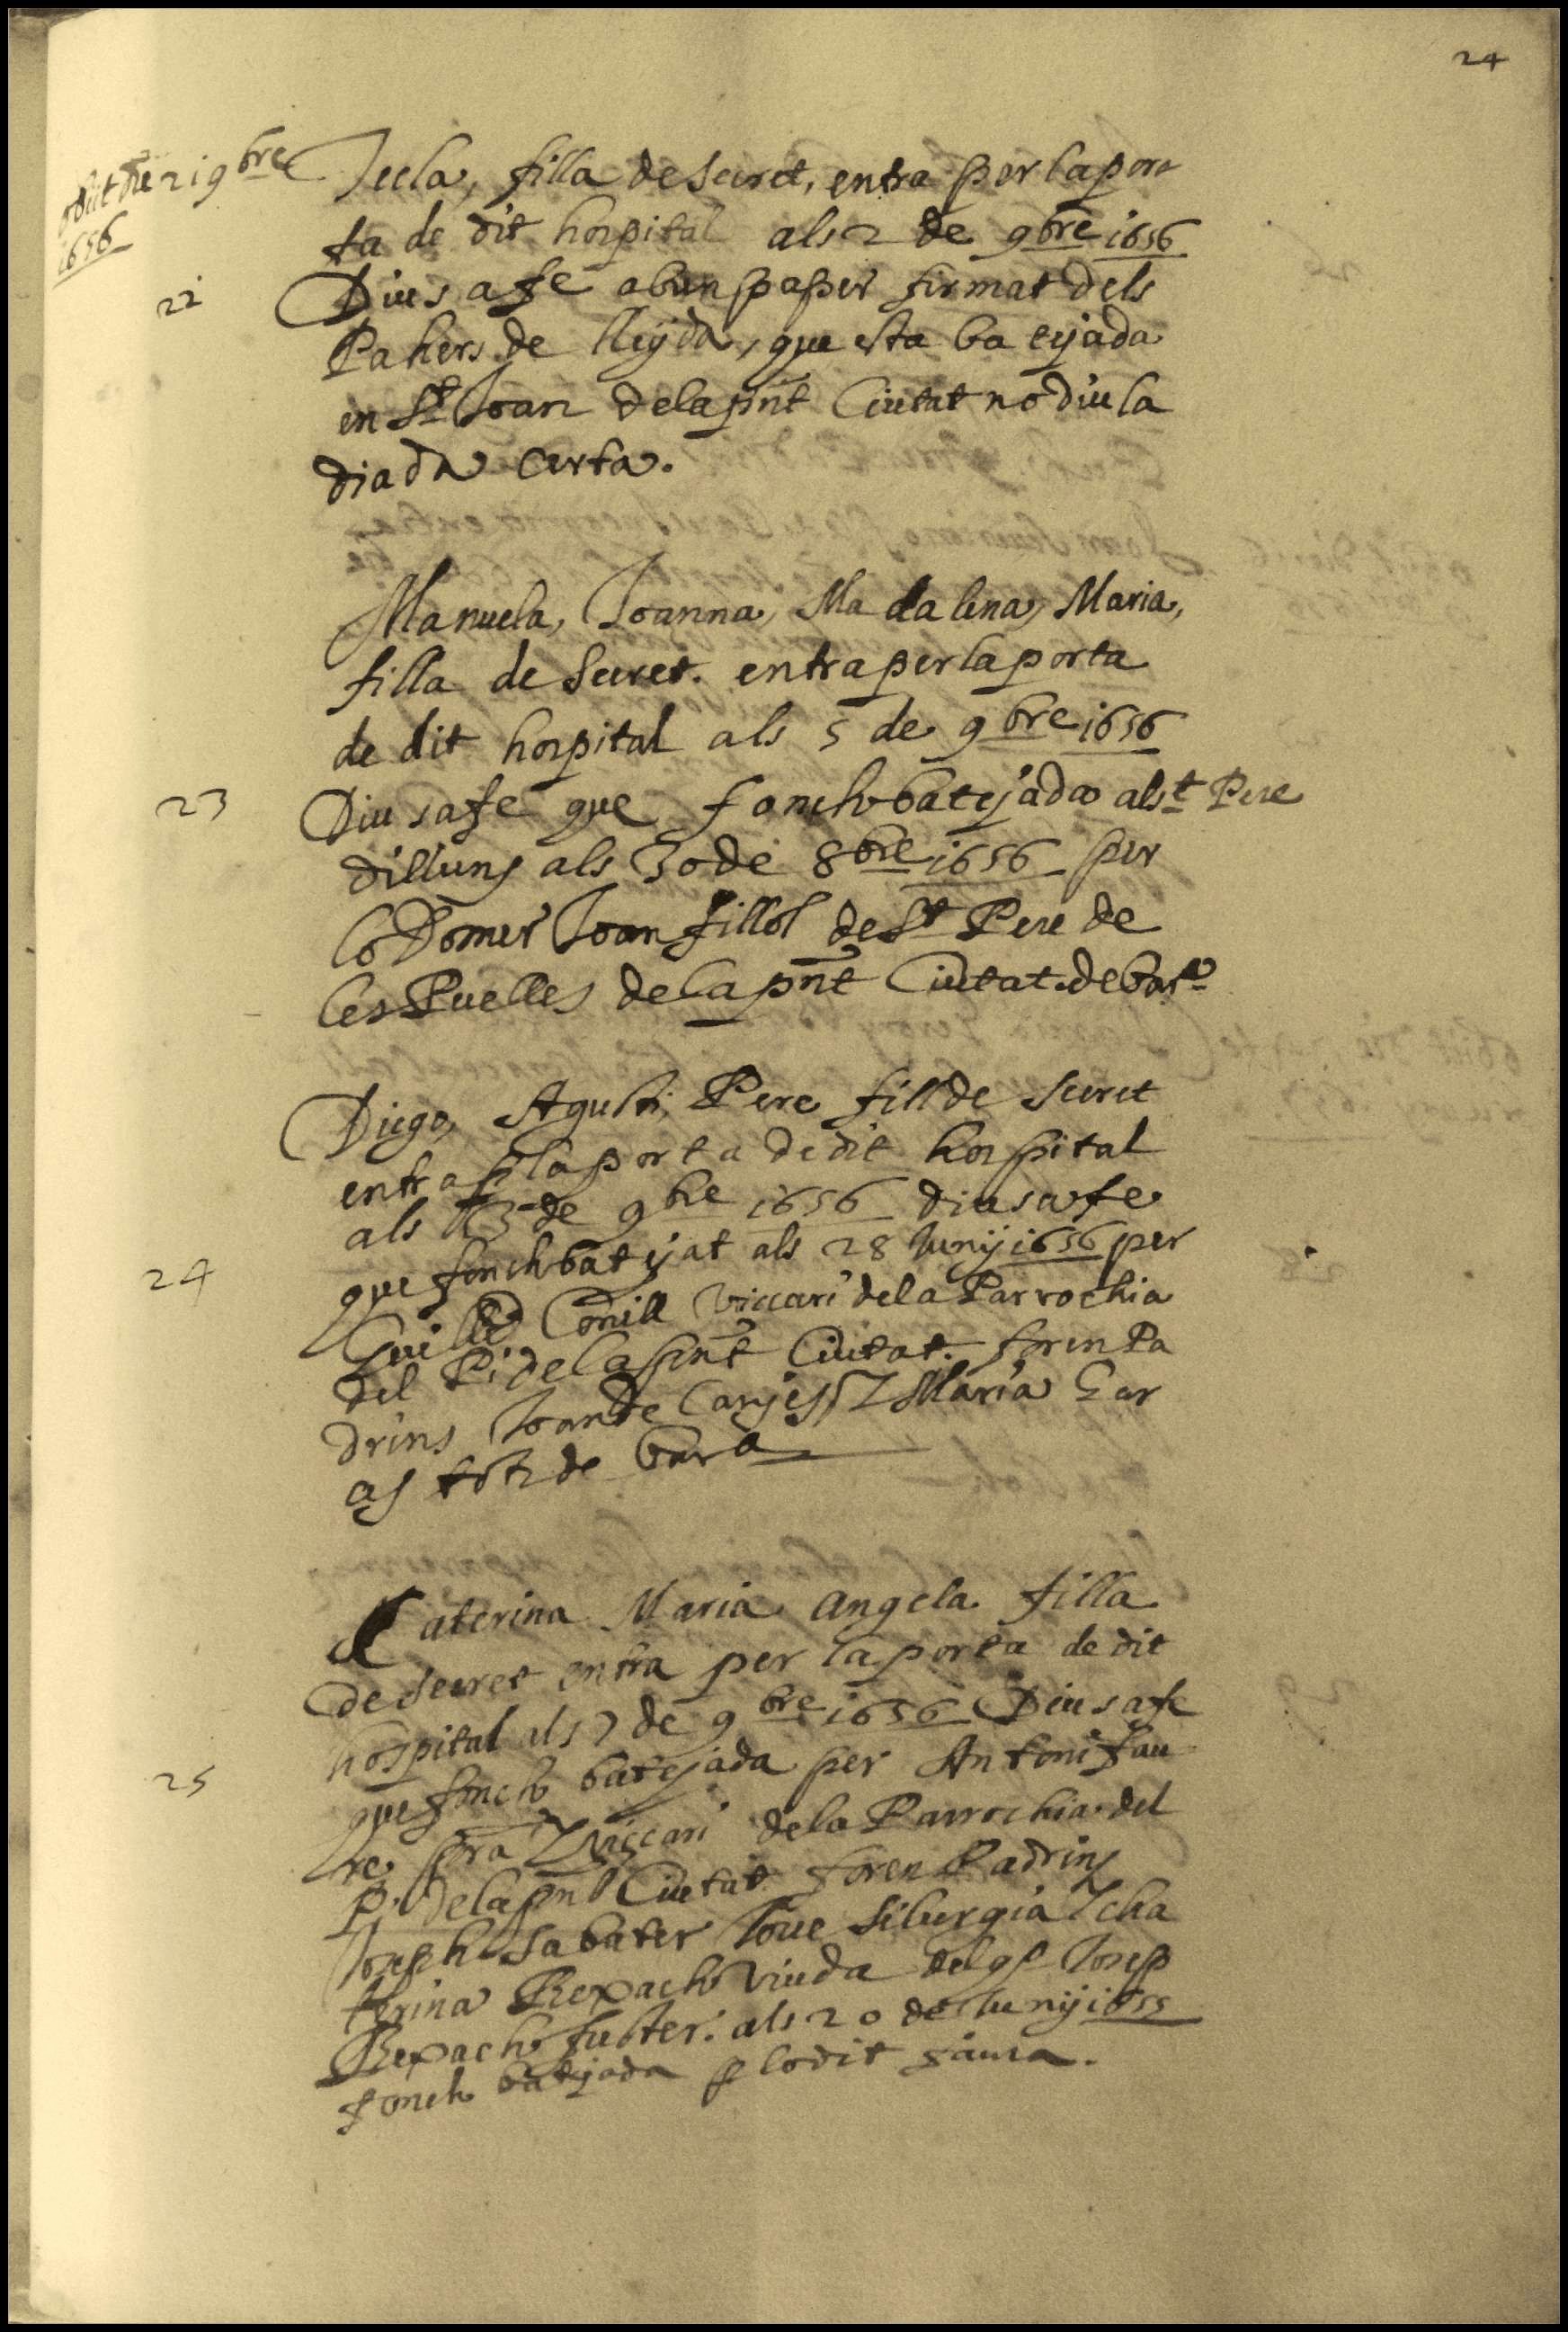 24
obiit die 21 9bre
1656
22
Tecla, filla de Secret, entra per la por
ta de dit hospital als 2 de 9bre 1656
Diu sa fe ab un paper firmat dels
Pahers de lleyda, que esta batejada
en St Joan de la pnt Ciutat no diu la
diada certa.
Manuela, Joanna, Madalena, Maria,
filla de Secret. entra per la porta
de dit hospital als 5 de 9bre 1656
23
Diu sa fe que fonch batejada a St Pere
dilluns als 30 de 8bre 1656 per
lo Domer Joan fillol de St Pere de
les Puelles de la pnt Ciutat de bar.
Diego, Agusti, Pere fill de Secret
entra p la porta de dit hospital
als de 9bre 1656 diu sa fe
24
que fonch batejat als 28 Juny 1656 per
Guillem Conill Viccari de la Parrochia
del Pi de la pnt Ciutat. foren Pa
drins Joan de Y Maria Gar
as tots de bara
Caterina Maria Angela filla
de Secret entra per la porta de dit
hospital als 7 de 9bre 1656 Diu sa fe
25
que fonch batejada per Antoni fau
re pra Y Viccari de la Parrochia del
Pi de la pnt Ciutat foren Padrins
Joseph Sabater Jove Silurgia Y Cha
terina Rexach Viuda del qº Josep
Rexach fuster. als 20 de Juny 1655
fonch batejada p lo dit faura.